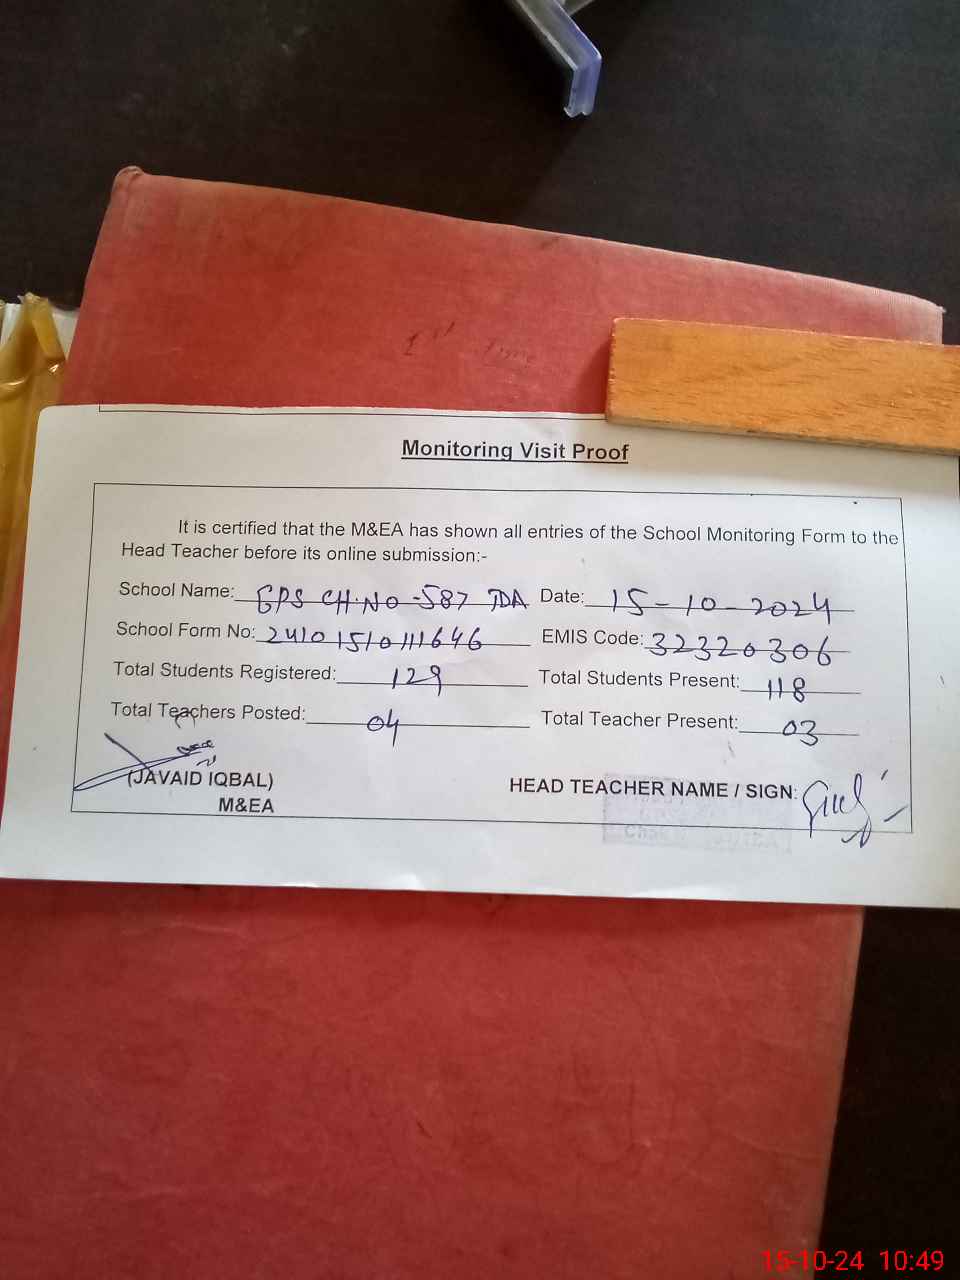 Monitoring Visit Proof
It is certified that the M&EA has shown all entries of the School Monitoring Form to the
Head Teacher before its online submission:-
School Name: GPS CH.NO-587 TDA Date: 15-10-2024
School Form No: 2410151011646 EMIS Code: 32320306
Total Students Registered: 129 Total Students Present: 118
Total Teachers Posted: 04 Total Teacher Present: 03
(JAVAID IQBAL) HEAD TEACHER NAME / SIGN:
M&EA
15-10-24 10:49